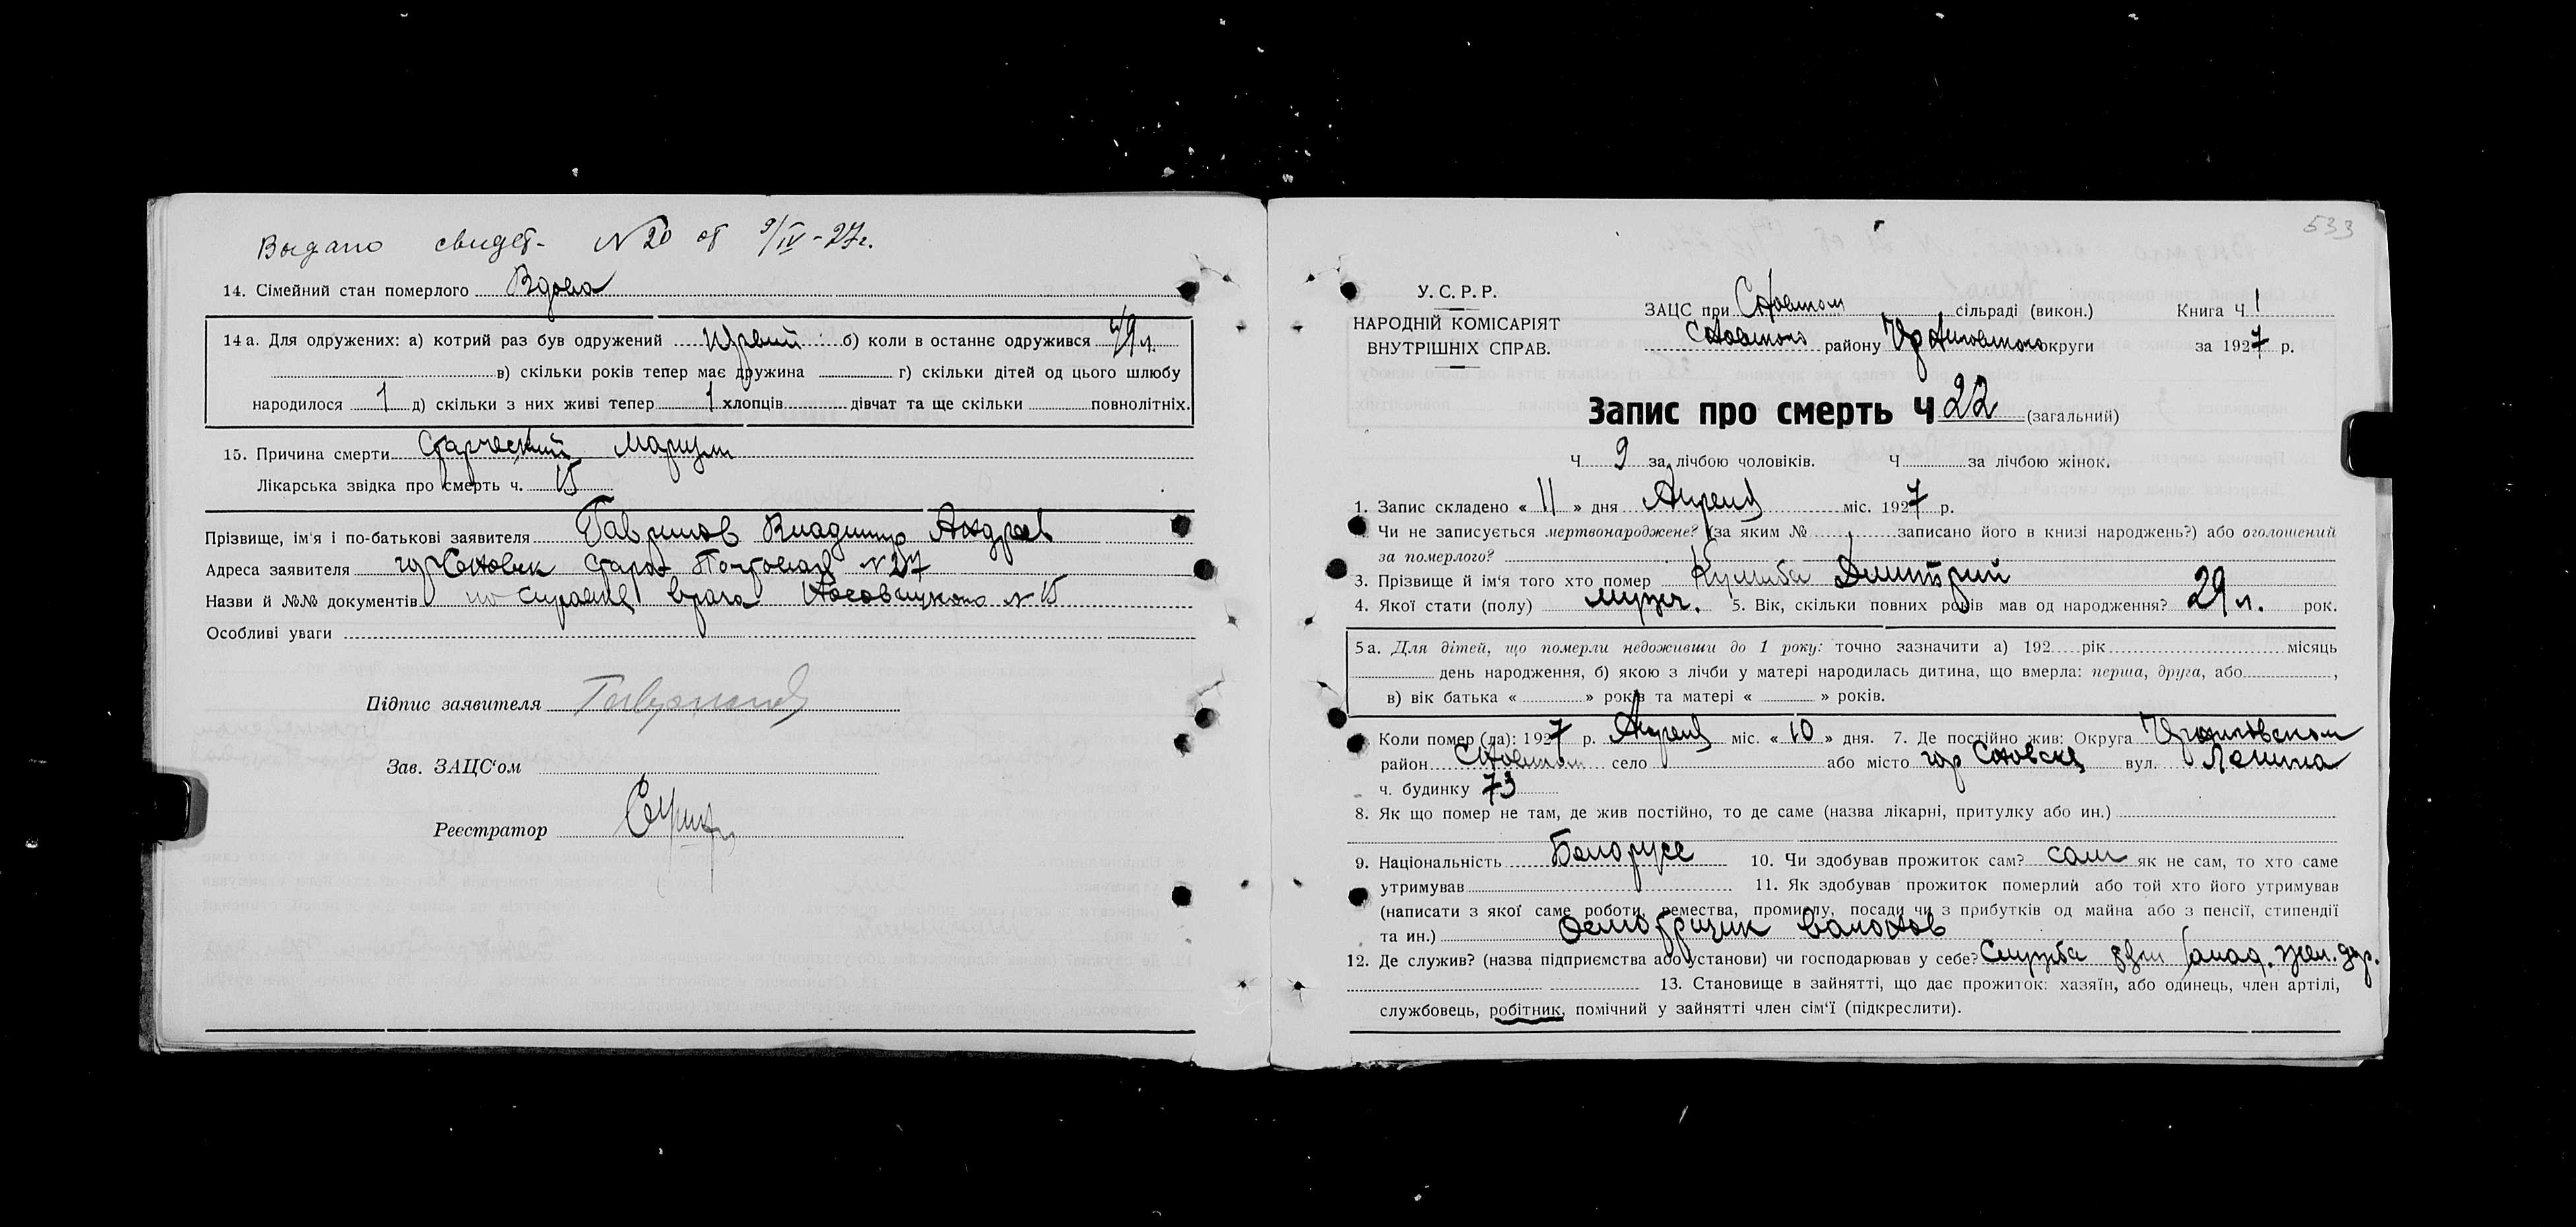 Выдано свидет- N 20 от 9/IV-27г.
14. Сімейний стан померлого Вдова
14 а. Для одружених: а) котрий раз був одружений б) коли в останнє одружився
в) скільки років тепер має дружина г) скільки дітей од цього шлюбу
народилося 1 д) скільки з них живі тепер 1 хлопців дівчат та ще скільки повнолітніх.
15. Причина смерти Старческий Маразм
Лікарська звідка про смерть ч. 15
Прізвище, ім'я і по-батькові заявителя Гаврилов Владимир Андреев
Адреса заявителя гор Сновск Старо Почтовая N 27
Назви й №№ документів по справке врача N 15
Особливі уваги
Підпис заявителя
Зав. ЗАЦС'ом
Реєстратор
533
У. С. Р. Р.
НАРОДНІЙ КОМІСАРІЯТ
ВНУТРІШНІХ СПРАВ.
ЗАЦС при Сновском сільраді (викон.) Книга Ч 1
Сновского району Черниговского округи за 1927 р.
Запис про смерть Ч 22 (загальний)
Ч 9 за лічбою чоловіків. Ч за лічбою жінок.
1. Запис складено « 11 » дня Апреля міс. 1927 р.
Чи не записується мертвонароджене? (за яким № записано його в книзі народжень?) або оголошений
за померлого?
3. Прізвище й ім'я того хто помер Дмитрий
4. Якої стати (полу) мужч. 5. Вік, скільки повних років мав од народження? 29 л. рок.
5 а. Для дітей, що померли недоживши до 1 року: точно зазначити а) 192 рік місяць
день народження, б) якою з лічби у матері народилась дитина, що вмерла: перша, друга, або ,
в) вік батька « » років та матері « » років.
Коли помер (ла): 1927 р. Апреля міс. « 10 » дня. 7. Де постійно жив: Округа Черниговском
район Сновском село або місто гор Сновск вул. Ленина
ч. будинку 73
8. Як що помер не там, де жив постійно, то де саме (назва лікарні, притулку або ин.)
9. Національність Белорусс 10. Чи здобував прожиток сам? сам як не сам, то хто саме
утримував 11. Як здобував прожиток померлий або той хто його утримував
(написати з якої саме роботи, ремества, промислу, посади чи з прибутків од майна або з пенсії, стипендії
та ин.) Осмотрщик вагонов
12. Де служив? (назва підприємства або установи) чи господарював у себе? Служба Запад. жел. дор.
13. Становище в зайнятті, що дає прожиток: хазяїн, або одинець, член артілі,
службовець, робітник, помічний у зайнятті член сім'ї (підкреслити).